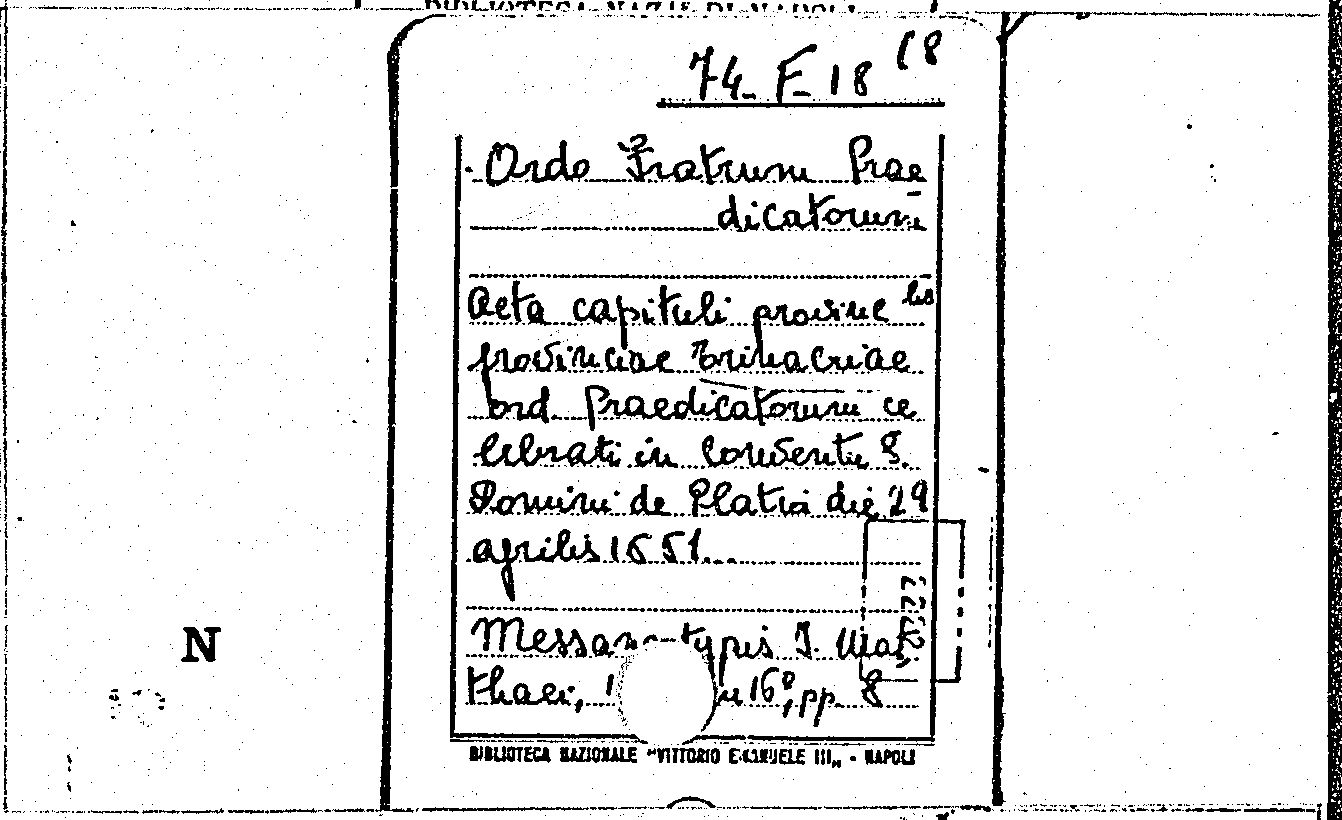 BIBLIOTECA NAZ. DI NAPOLI
74. F 18 (8
Ordo Fratrum Prae
dicatorum
Acta capituli provinc lis
provinciae Trinacriae
ord. Praedicatorum ce
lebrati in Conventu S.
Domini de Platia die 29
aprilis 1651...
Messanae typis J. Mat
thaei, 1 in 16º, pp. 8
N
BIBLIOTECA NAZIONALE "VITTORIO EMANUELE III„ - NAPOLI